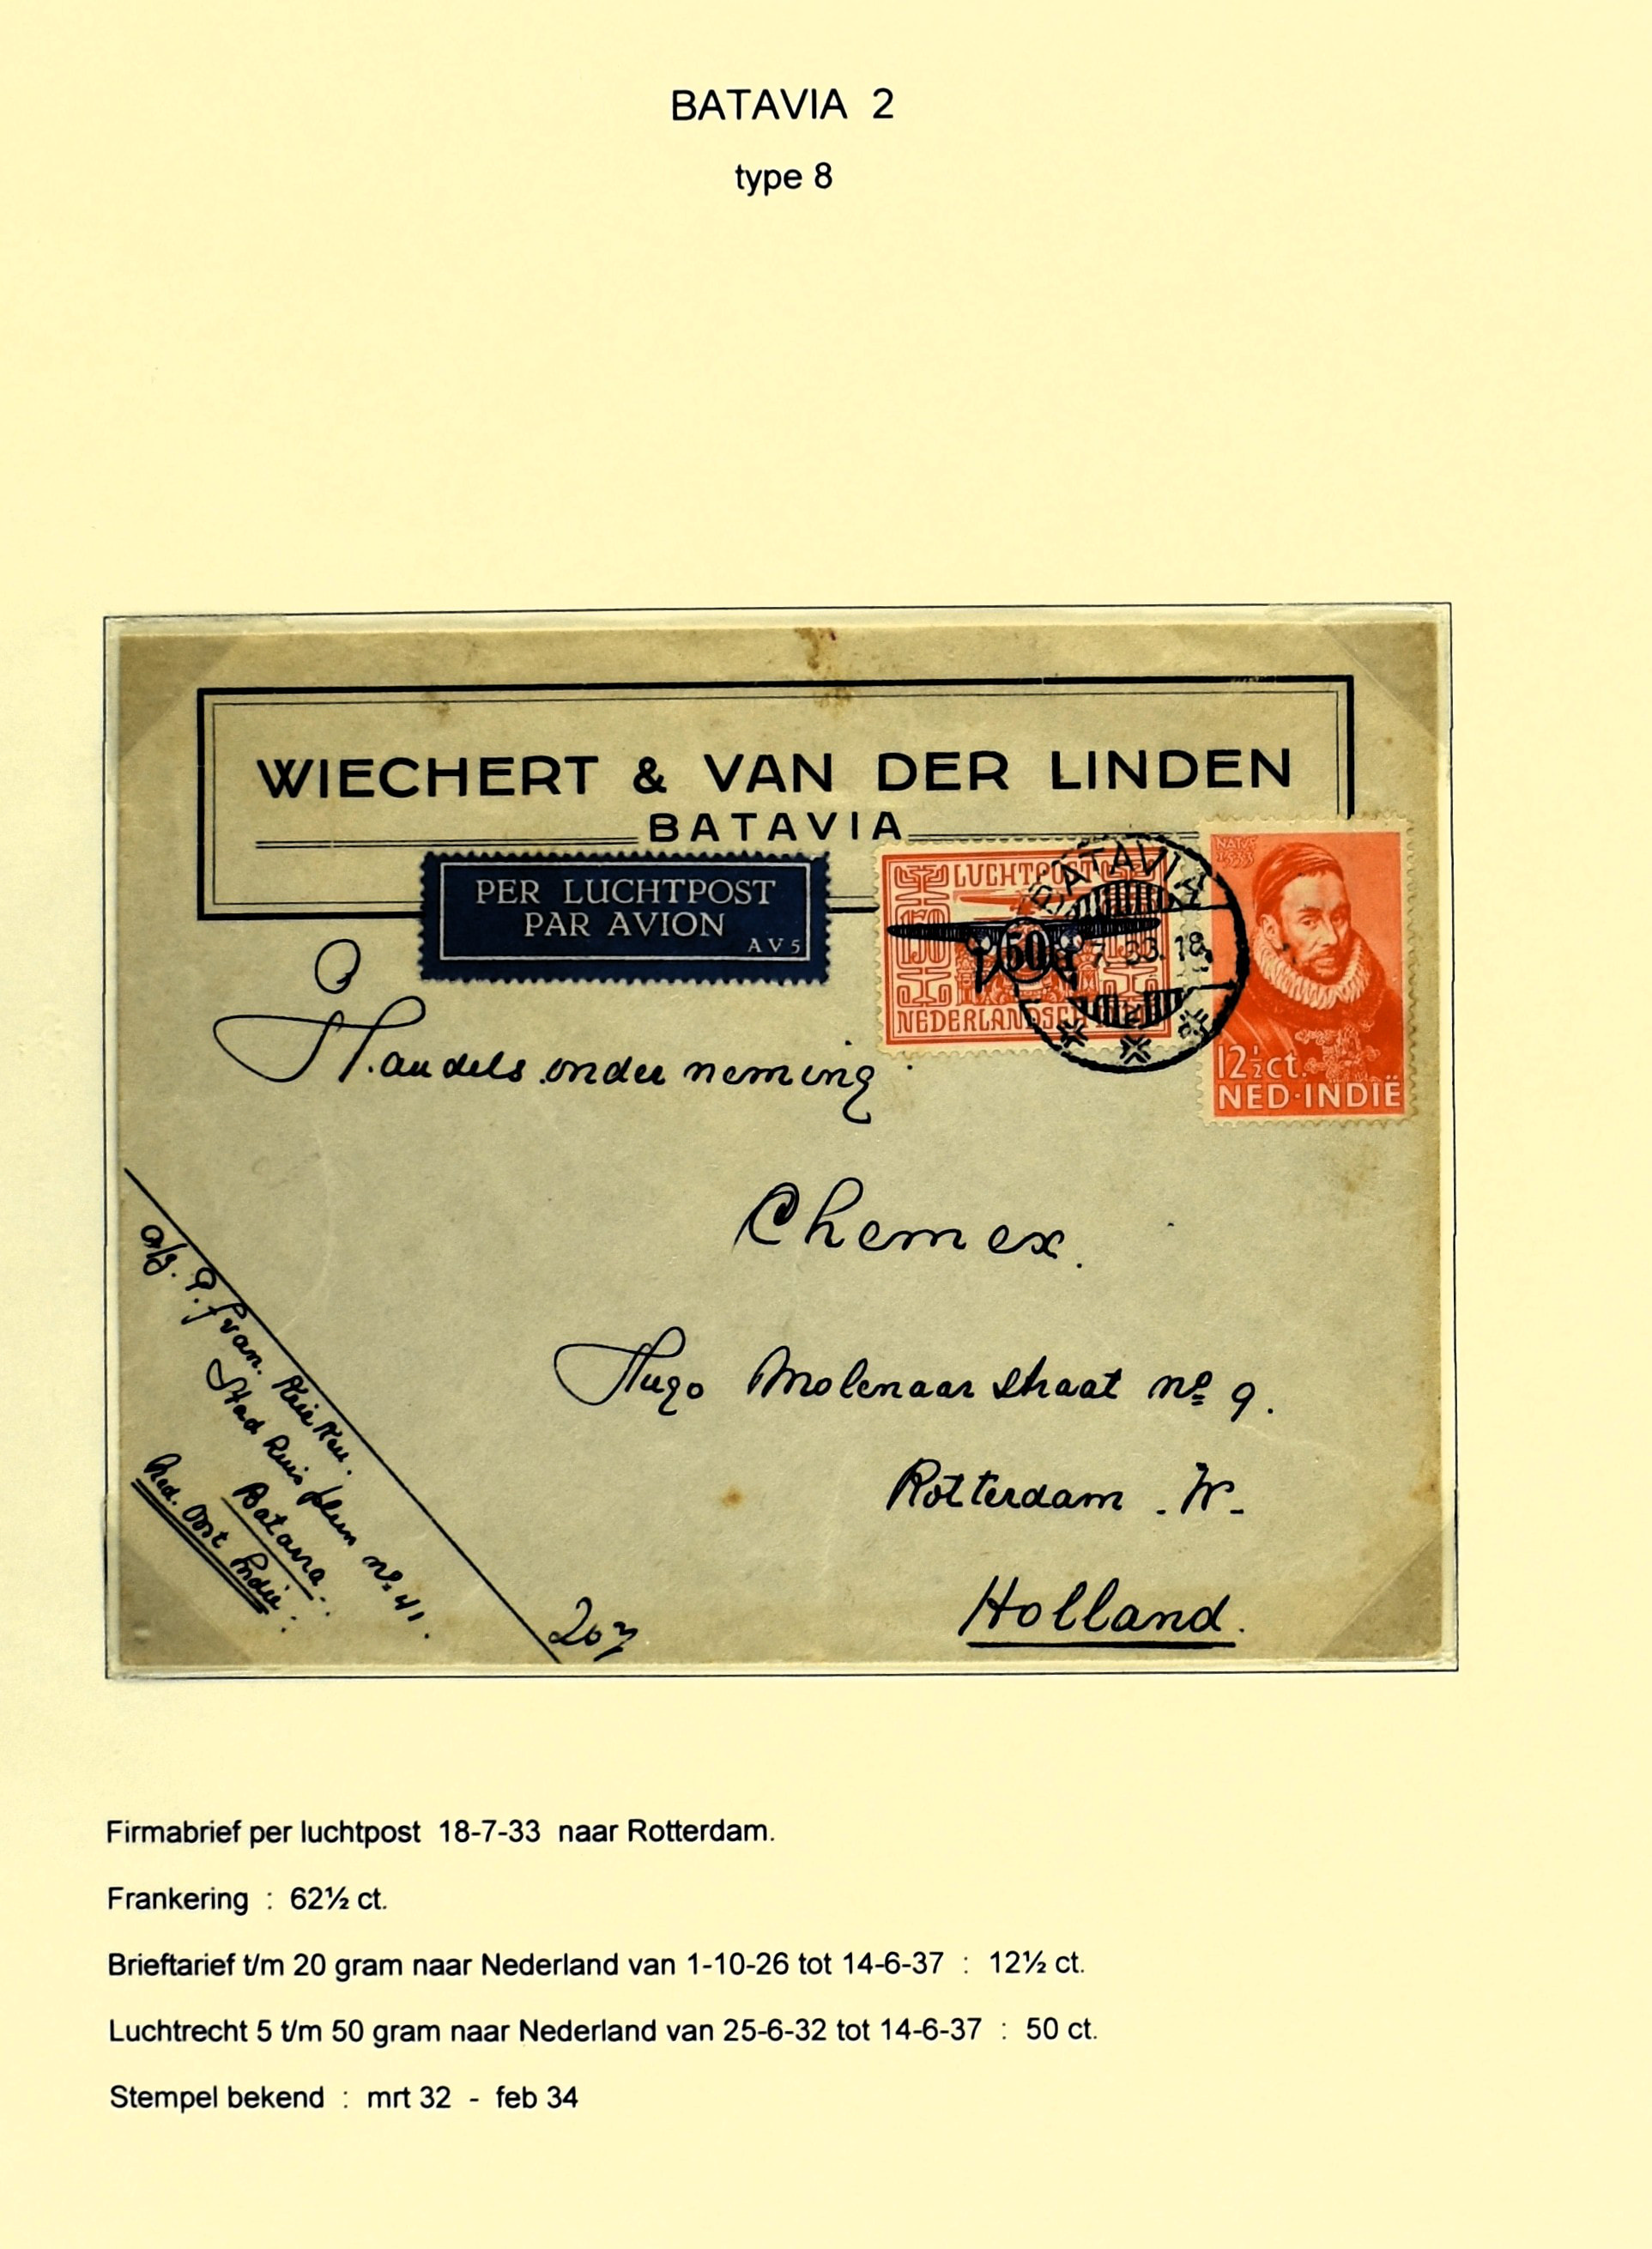 BATAVIA 2
type 8
WIECHERT & VAN DER LINDEN
BATAVIA
PER LUCHTPOST
PAR AVION
AV5
LUCHTPOST
150
50
NEDERLANDSCH
BATAVIA
7. 33. 18
2
NAT. 1533
12½ct.
NED·INDIË
Handels onderneming
Chemex.
Hugo Molenaar straat no 9.
Rotterdam - W -
Holland.
afz. P. J van.
no. 41.
Batavia.
Ned. Oost Indië.
Firmabrief per luchtpost 18-7-33 naar Rotterdam.
Frankering : 62½ ct.
Brieftarief t/m 20 gram naar Nederland van 1-10-26 tot 14-6-37 : 12½ ct.
Luchtrecht 5 t/m 50 gram naar Nederland van 25-6-32 tot 14-6-37 : 50 ct.
Stempel bekend : mrt 32 - feb 34